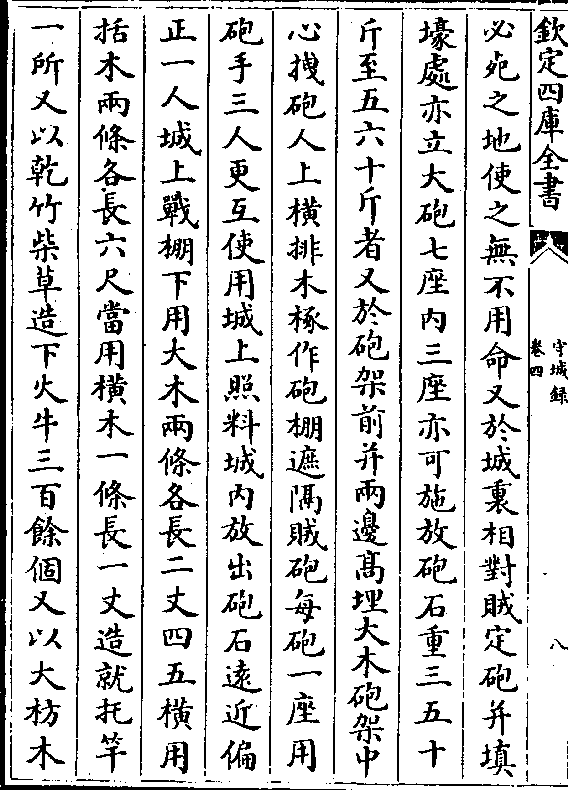 欽定四庫全書
守城録
卷四
八
必死之地使之無不用命又於城裏相對賊定砲并填
壕處亦立大砲七座内三座亦可施放砲石重三五十
斤至五六十斤者又於砲架前并兩邊髙埋大木砲架中
心拽砲人上横排木椽作砲棚遮隔賊砲每砲一座用
砲手三人更互使用城上照料城内放出砲石遠近偏
正一人城上戰棚下用大木兩條各長二丈四五横用
括木兩條各長六尺當用横木一條長一丈造就托竿
一所又以乾竹柴草造下火牛三百餘個又以大枋木